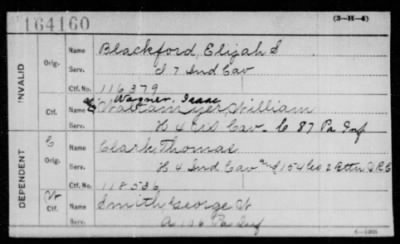 164160
(3—H—4)
INVALID
Orig.
Name Blackford, Elijah S
Serv. I 7 Ind Cav
Ctf. No. 116379
Wagner, Isaac
Ctf. Name William
Serv. H 4 US Cav. C 87 Pa Inf
DEPENDENT
Orig.
Name Clark Thomas
Serv. H 4 Ind Cav and 154 Co 2 Battn
Ctf. No. 118536
Ctf.
Name Smith George W
Serv. A 106 Pa Inf